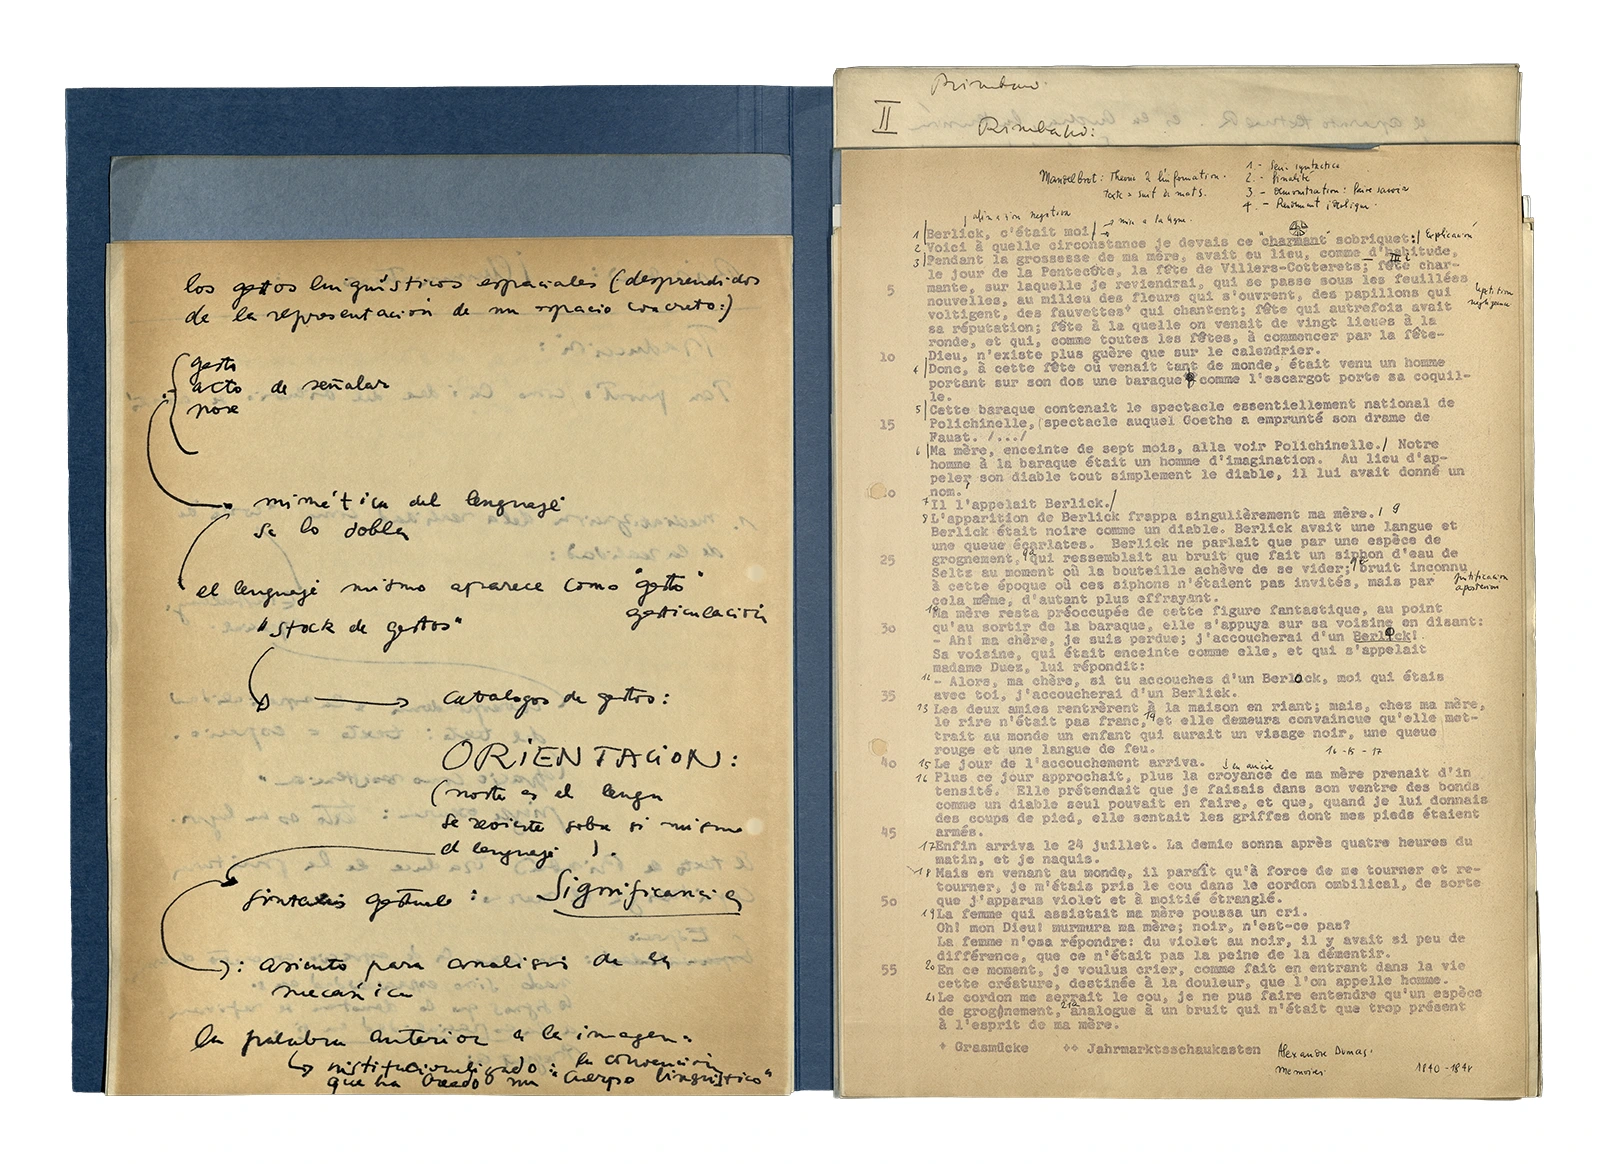 los gestos lingüísticos espaciales (desprendidos
de la representación de un espacio concreto:)
gesto
acto de señalar
pose
mimética del lenguaje
se lo dobla
el lenguaje mismo aparece como "gesto"
gesticulación
"stock de gestos"
catalogos de gestos:
ORIENTACION:
es el lengu
sobre si mismo
el lenguaje ).
sintaxis gestual: Significancia
): asiento para analisis de la
mecánica
la palabra anterior a la imagen.
institucionalizado: la convención
que ha creado un "cuerpo lingüístico"
Rimbaud
II
Rimbaud:
Mandelbrot: Théorie de l'information.
texte = suit de mots.
1.- syntactica
2.- finalité
3 - démonstration: faire savoir
4.-
afirmacion negation
mise a la ligne.
1 Berlick, c'était moi
2 Voici à quelle circonstance je devais ce "charmant" sobriquet: explicación
3 Pendant la grossesse de ma mère, avait eu lieu, comme d'habitude,
le jour de la Pentecôte, la fête de Villers-Cotterets; fête char-
5 mante, sur laquelle je reviendrai, qui se passe sous les feuillées
nouvelles, au milieu des fleurs qui s'ouvrent, des papillons qui
voltigent, des fauvettes+ qui chantent; fête qui autrefois avait
sa réputation; fête à la quelle on venait de vingt lieues à la
ronde, et qui, comme toutes les fêtes, à commencer par la fête-
10 Dieu, n'existe plus guère que sur le calendrier.
4 Donc, à cette fête où venait tant de monde, était venu un homme
portant sur son dos une baraque comme l'escargot porte sa coquil-
le.
5 Cette baraque contenait le spectacle essentiellement national de
15 Polichinelle, (spectacle auquel Goethe a emprunté son drame de
Faust. /.../
6 Ma mère, enceinte de sept mois, alla voir Polichinelle. Notre
homme à la baraque était un homme d'imagination. Au lieu d'ap-
peler son diable tout simplement le diable, il lui avait donné un
nom.
7 Il l'appelait Berlick.
8 L'apparition de Berlick frappa singulièrement ma mère. 9
Berlick était noire comme un diable. Berlick avait une langue et
une queue écarlates. Berlick ne parlait que par une espèce de
25 grognement, qui ressemblait au bruit que fait un siphon d'eau de
Seltz au moment où la bouteille achève de se vider; bruit inconnu
à cette époque où ces siphons n'étaient pas invités, mais par
cela même, d'autant plus effrayant.
justificacion
a posteriori
Ma mère resta préoccupée de cette figure fantastique, au point
30 qu'au sortir de la baraque, elle s'appuya sur sa voisine en disant:
- Ah! ma chère, je suis perdue; j'accoucherai d'un Berlick!
Sa voisine, qui était enceinte comme elle, et qui s'appelait
madame Duez, lui répondit:
- Alors, ma chère, si tu accouches d'un Berlock, moi qui étais
35 avec toi, j'accoucherai d'un Berlick.
13 Les deux amies rentrèrent à la maison en riant; mais, chez ma mère,
le rire n'était pas franc, et elle demeura convaincue qu'elle met-
trait au monde un enfant qui aurait un visage noir, une queue
rouge et une langue de feu.
16-15-17
40 15 Le jour de l'accouchement arriva.
16 Plus ce jour approchait, plus la croyance de ma mère prenait d'in
tensité. Elle prétendait que je faisais dans son ventre des bonds
comme un diable seul pouvait en faire, et que, quand je lui donnais
des coups de pied, elle sentait les griffes dont mes pieds étaient
45 armés.
17 Enfin arriva le 24 juillet. La demie sonna après quatre heures du
matin, et je naquis.
18 Mais en venant au monde, il paraît qu'à force de me tourner et re-
tourner, je m'étais pris le cou dans le cordon ombilical, de sorte
50 que j'apparus violet et à moitié étranglé.
19 La femme qui assistait ma mère poussa un cri.
Oh! mon Dieu! murmura ma mère; noir, n'est-ce pas?
La femme n'osa répondre: du violet au noir, il y avait si peu de
différence, que ce n'était pas la peine de la démentir.
55 20 En ce moment, je voulus crier, comme fait en entrant dans la vie
cette créature, destinée à la douleur, que l'on appelle homme.
21 Le cordon me serrait le cou, je ne pus faire entendre qu'un espèce
de grognement, 21a analogue à un bruit qui n'était que trop présent
à l'esprit de ma mère.
+ Grasmücke ++ Jahrmarktsschaukasten
Alexandre Dumas:
Memoires
1840-1848